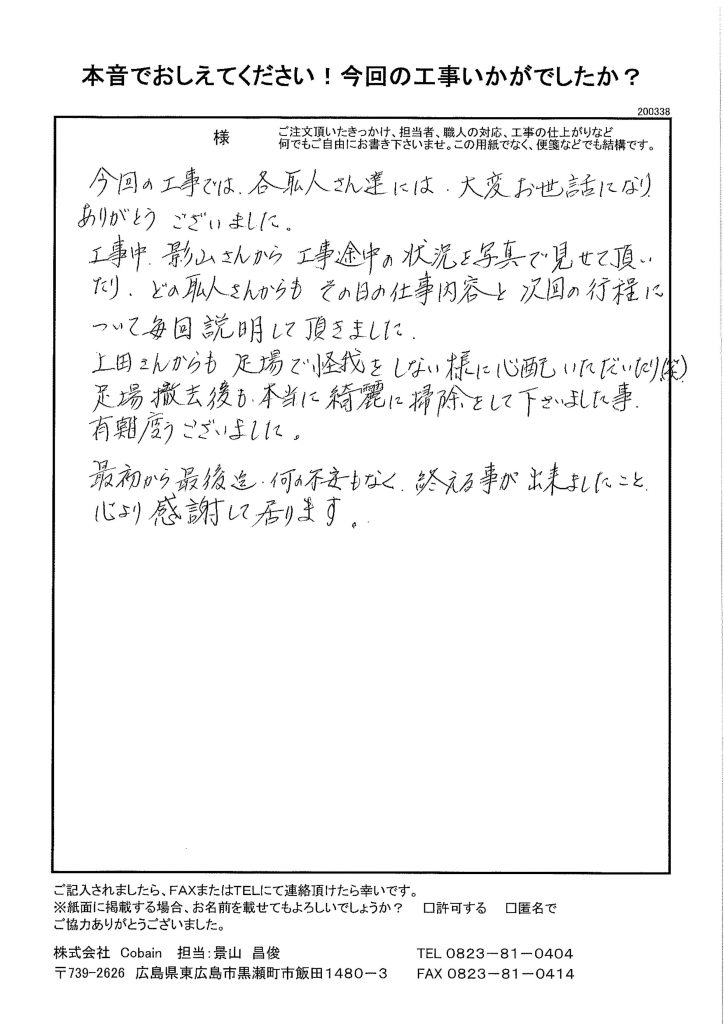 本音でおしえてください！今回の工事いかがでしたか？
200338
様
ご注文頂いたきっかけ、担当者、職人の対応、工事の仕上がりなど
何でもご自由にお書き下さいませ。この用紙でなく、便箋などでも結構です。
今回の工事では、各職人さん達には、大変お世話になり
ありがとうございました。
工事中、影山さんから工事途中の状況を写真で見せて頂い
たり、どの職人さんからもその日の仕事内容と次回の行程に
ついて毎回説明して頂きました。
上田さんからも足場で怪我をしない様に心配いただいたり(笑)
足場撤去後も本当に綺麗に掃除をして下さいました事、
有難度うございました。
最初から最後迄、何の不安もなく、終える事が出来ましたこと、
心より感謝して居ります。
ご記入されましたら、FAXまたはTELにて連絡頂けたら幸いです。
※紙面に掲載する場合、お名前を載せてもよろしいでしょうか？ □許可する □匿名で
ご協力ありがとうございました。
株式会社 Cobain 担当：景山 昌俊 TEL 0823－81－0404
〒739-2626 広島県東広島市黒瀬町市飯田1480－3 FAX 0823－81－0414